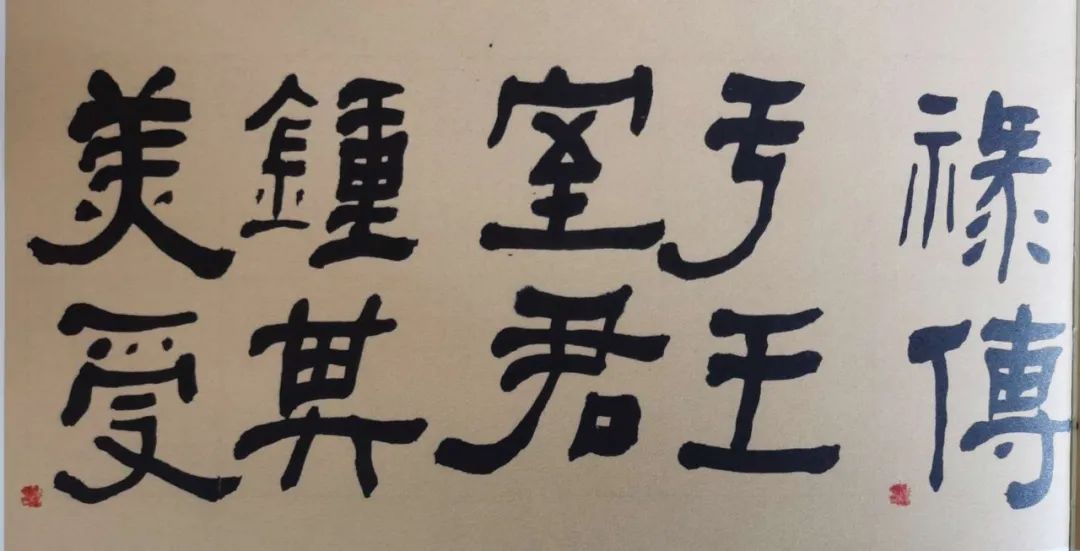 祿傳
于王
室君
鍾其
美受